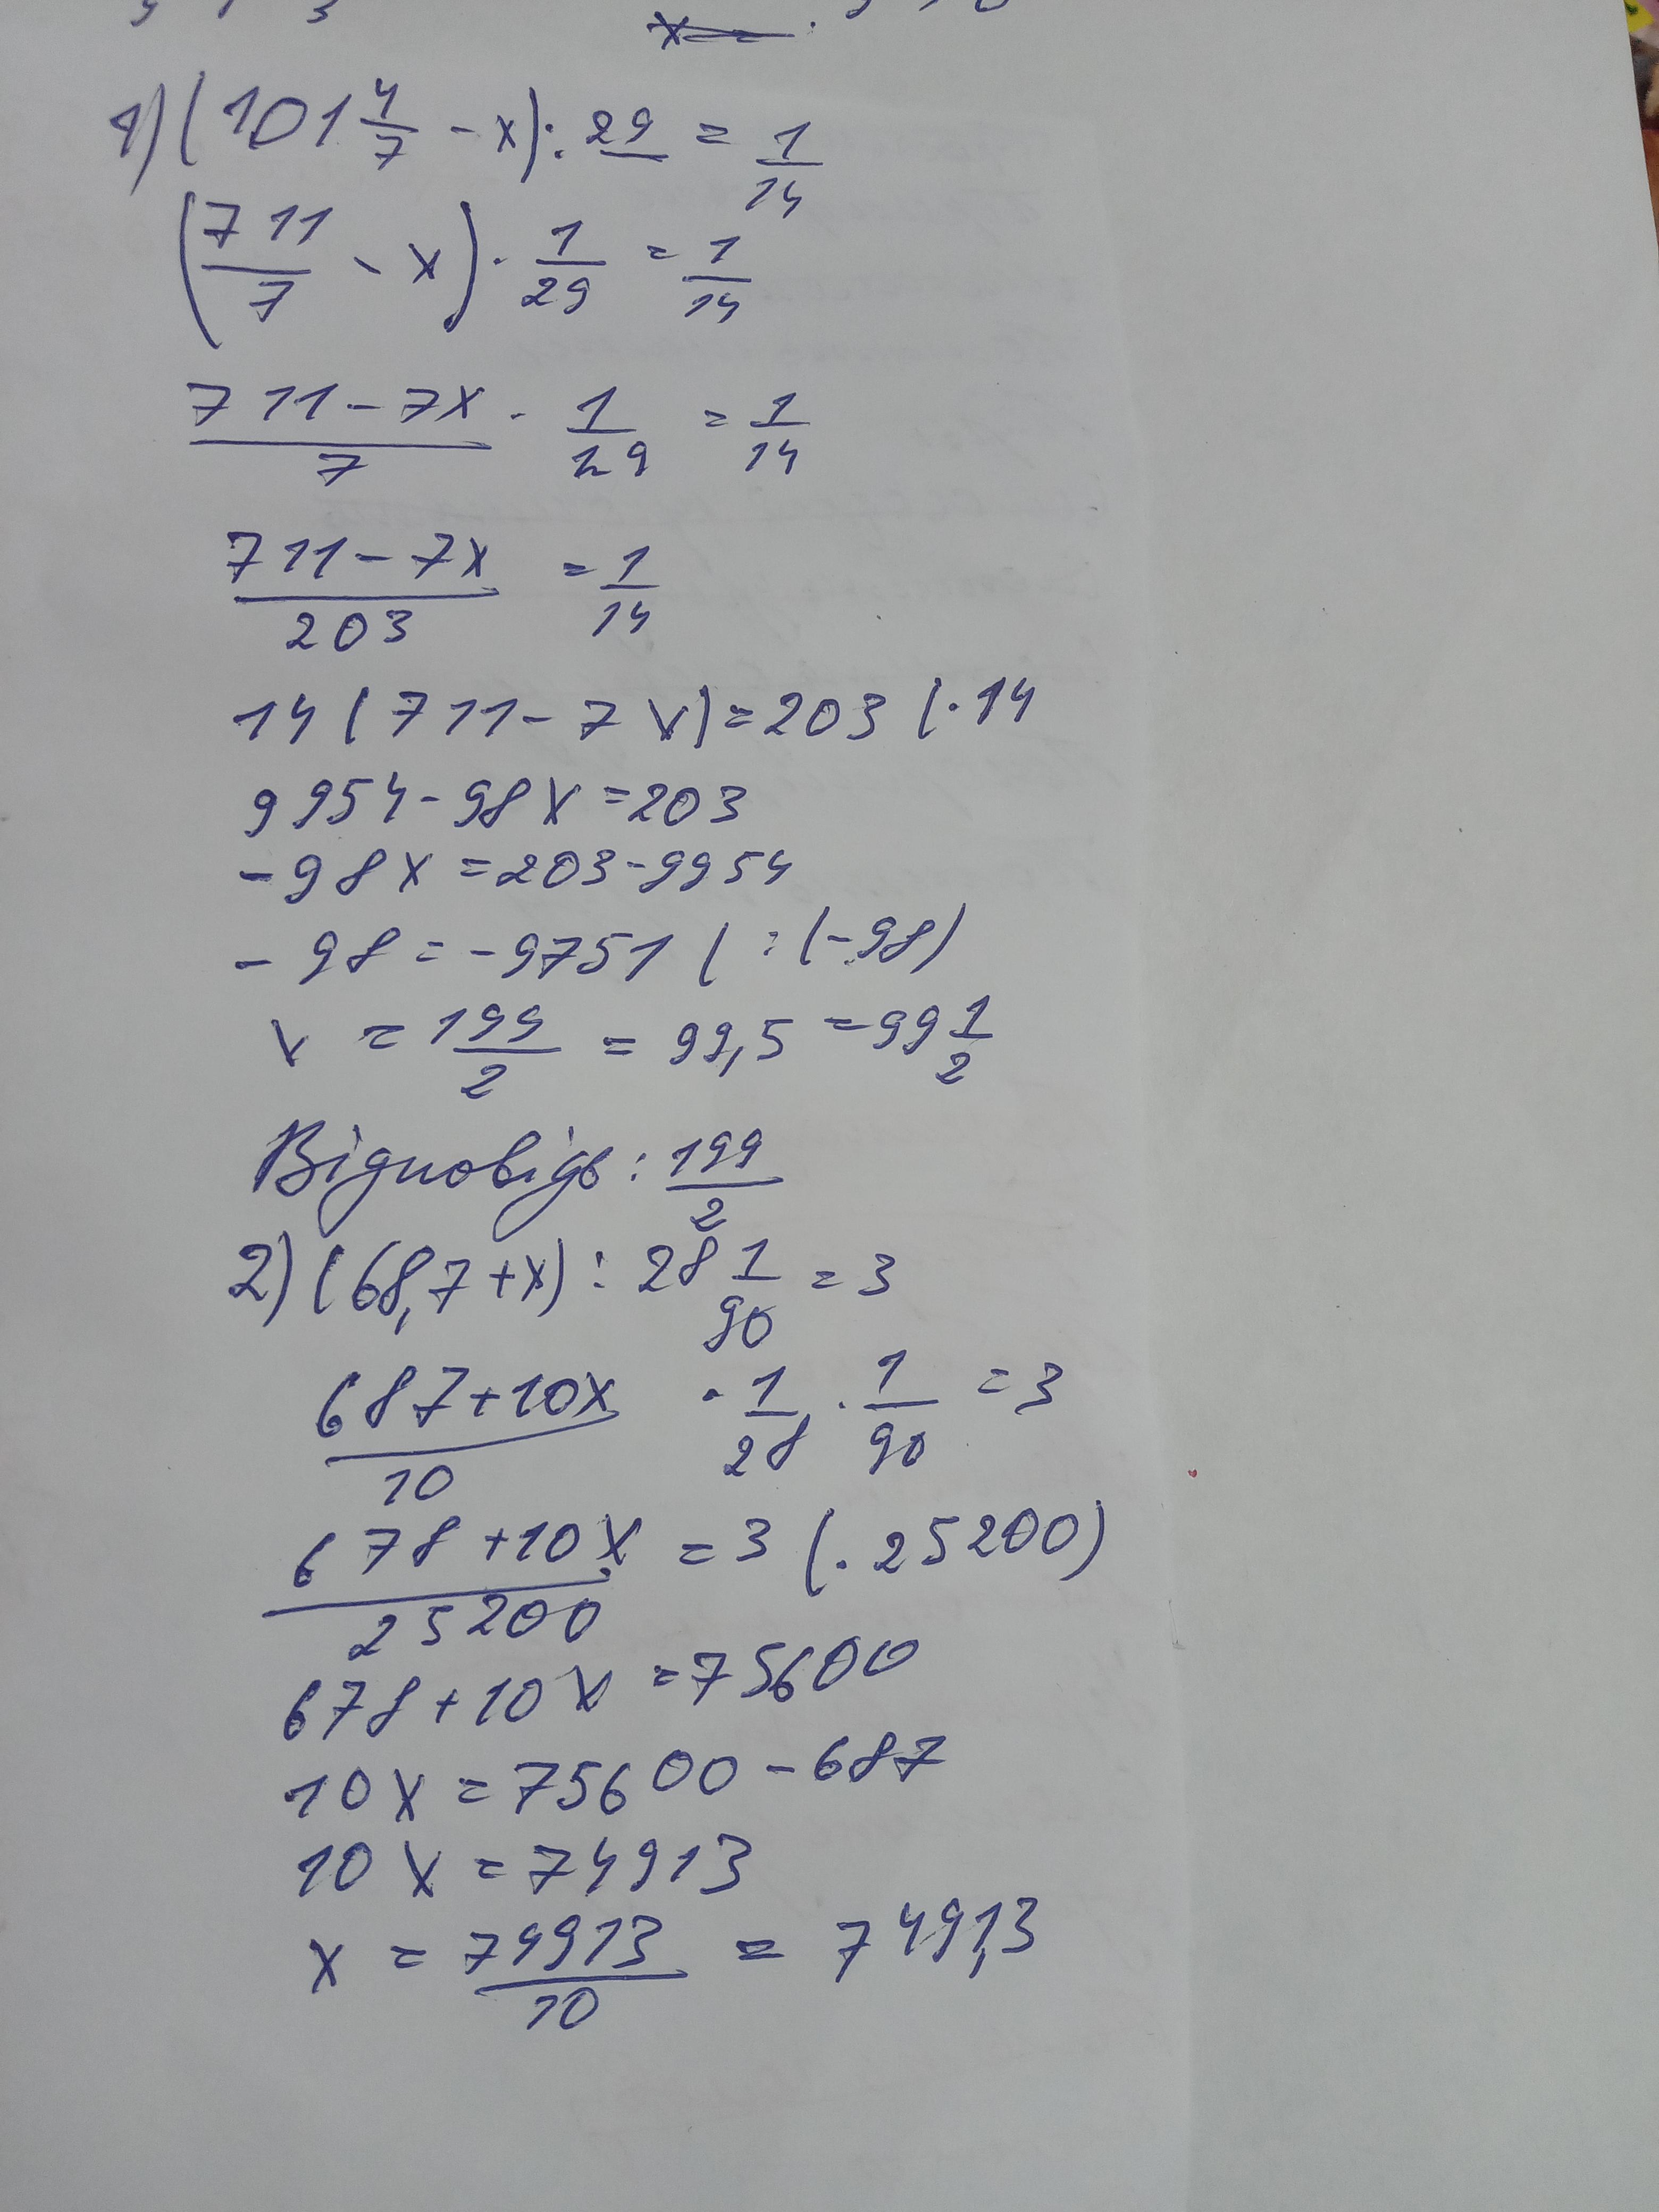 1) (101 4/7 - x) : 29 = 1/14
(711/7 - x) · 1/29 = 1/14
711 - 7x/7 · 1/29 = 1/14
711 - 7x/203 = 1/14
14(711 - 7x) = 203 (·14
9954 - 98x = 203
-98x = 203 - 9954
-98 = -9751 ( : (-98)
x = 199/2 = 99,5 = 99 1/2
Відповідь: 199/2
2) (68,7 + x) : 28 1/90 = 3
687 + 10x/10 · 1/28 · 1/90 = 3
678 + 10x/25200 = 3 (·25200)
678 + 10x = 75600
10x = 75600 - 687
10x = 74913
x = 74913/10 = 7491,3